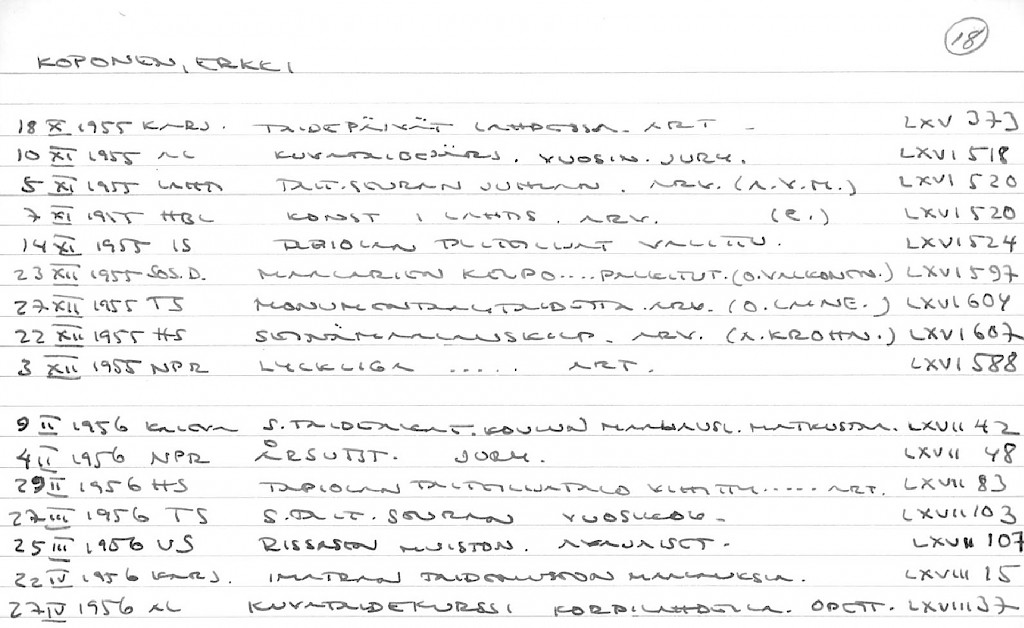 18
KOPONEN, ERKKI
18 X 1955 KARJ. TAIDEPÄIVÄT LAHDESSA. ART. LXV 373
10 XI 1955 AL KUVATAIDEJÄRJ. VUOSIN. JULK. LXVI 518
5 XI 1955 LAHTI TAIT. SEURAN JUHLAN. ARV. (A.V.M.) LXVI 520
7 XI 1955 HBL KONST I LAHTIS. ARV. (E.) LXVI 520
14 XI 1955 IS TAPIOLAN TAITEILIJAT VALITTU. LXVI 524
23 XII 1955 SOS.D. MAALARIEN KILPO.... PALKITUT. (O. VALKONEN.) LXVI 597
27 XII 1955 TS MONUMENTAALITAIDETTA. ARV. (O. LAINE.) LXVI 604
22 XII 1955 HS SEINÄMAALAUSKILP. ARV. (A. KROHN.) LXVI 607
3 XII 1955 NPR LYCKLIGA ..... ART. LXVI 588
9 II 1956 KALEVA S. TAIDEAKAT. KOULUN MAALAUSL. MATKUSTAA. LXVII 42
4 II 1956 NPR ÅRSUTST. JULK. LXVII 48
29 II 1956 HS TAPIOLAN TAITEILIJATALO VIHITTY..... ART. LXVII 83
27 III 1956 TS S. TAIT. SEURAN VUOSIKOK. LXVII 103
25 III 1956 US RISSASEN MUISTON. AVAJAISET. LXVII 107
22 IV 1956 KARJ. IMATRAN TAIDEMUSEON MAALAUKSIA. LXVIII 15
27 IV 1956 AL KUVATAIDEKURSSI KORPILAHDELLA. OPETT. LXVIII 37